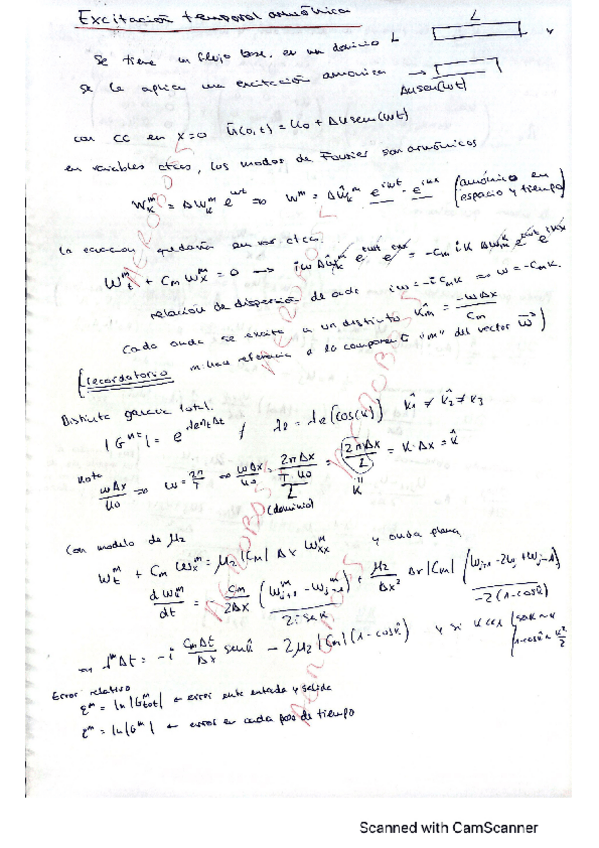 Excitación temporal armónica
L
Se tiene un flujo base, en un dominio L
Se le aplica una excitación armónica → Δu sen(ωt)
con CC en x=0 ū(0,t) = u₀ + Δu sen(ωt)
en variables ctcas, los modos de Fourier son armónicos
W_K^m = ΔŴ_K^m e^{iωt} ⇒ W^m = Δŵ_K^m e^{iωt} · e^{ikx} (armónico en espacio y tiempo)
La ecuacion quedaría en var. ctcas
W_t^m + C_m W_x^m = 0 → iω Δŵ_K^m e^{iωt} e^{ikx} = -C_m iK Δŵ_K^m e^{iωt} e^{ikx}
relación de dispersión de onda iω = -i C_m K ⇒ ω = -C_m K.
Cada onda se excita a un distinto K̂_m = -ωΔx / C_m
(recordatorio m: hace referencia a la componente "m" del vector w⃗)
Distinta ganancia total.
/ λ_e = λ_e(cos(k̂)) k̂₁ ≠ k̂₂ ≠ k̂₃
Note
ωΔx/u₀ ⇒ ω = 2π/T ⇒ ωΔx/u₀ = 2πΔx/(T·u₀) = 2πΔx/L = K·Δx = k̂
L
(dominio)
K
Con modelo de μ₂
W_t^m + C_m W_x^m = μ₂|C_m| Δx W_xx^m y onda plana
dW_t^m/dt = -C_m/2Δx (W_{j+1}^m - W_{j-1}^m) + μ₂/Δx² Δx|C_m| (W_{j+1} - 2W_j + W_{j-1})
2i sen k̂
-2(1-cos k̂)
λ^m Δt = -i C_mΔt/Δx sen k̂ - 2μ₂|C_m|(1-cos k̂) y si k̂<<1 { sen k̂ ~ k̂
1-cos k̂ ~ k̂²/2
Error relativo
ε^m = ln|G_tot^m| ← error ente entrada y salida
ε^m = ln|G^m| ← error en cada paso de tiempo
AEROBOES
AEROBOES
AEROBOES
AEROBOES
AEROBOES
Scanned with CamScanner